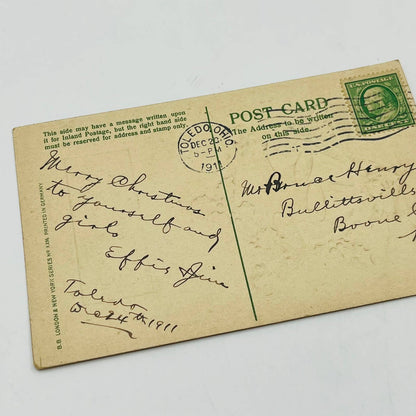 This side may have a message written upon
it for Inland Postage, but the right hand side
must be reserved for address and stamp only.
Merry Christmas
to yourself and
girls
Effie & Jim
Toledo
Dec 24th 1911
B.B. LONDON & NEW YORK SERIES No PRINTED IN GERMANY
TOLEDO, OHIO.
DEC 2
5-PM
1911
POST CARD
The Address to be written
on this side.
U.S. POSTAGE
Mr Bruce Henry
Bullittsville
Boone